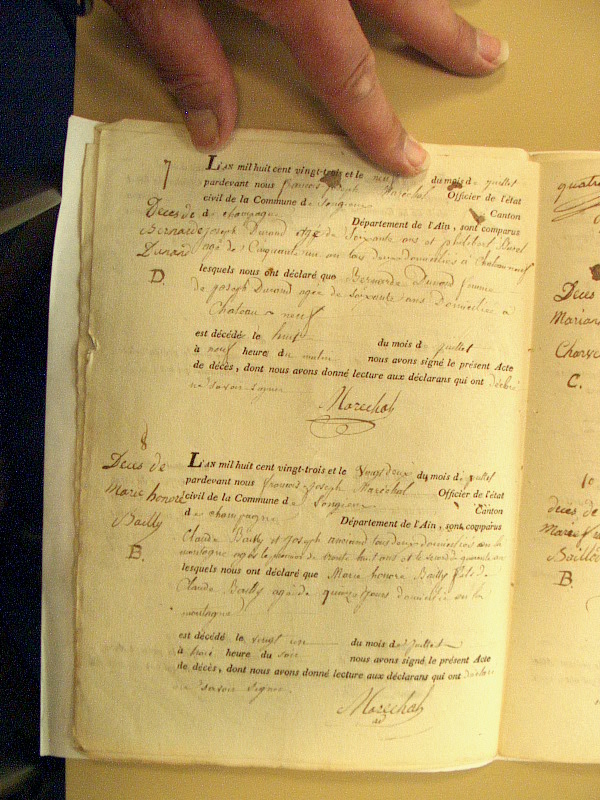 7
L'AN mil huit cent vingt-trois et le neuf du mois de juillet
pardevant nous françois joseph Maréchal Officier de l'état
civil de la Commune de Songieux Canton
de champagne Département de l'Ain, sont comparus
Deces de
Bernarde
Durand
D.
joseph Durand age de Soixante ans et
age de Cinquante un ans tous deux domiciliés à Chateauneuf
lesquels nous ont déclaré que Bernarde Durand femme
de joseph Durand agée de soixante ans Domiciliée a
Chateau neuf
est décédée le huit du mois de juillet
à neuf heure du matin nous avons signé le présent Acte
de décès, dont nous avons donné lecture aux déclarans qui ont déclaré
ne savoir signer
Marechal
8
Deces de
Marie honoré
Bailly
B.
L'AN mil huit cent vingt-trois et le Vingt deux du mois de juillet
pardevant nous françois joseph Maréchal Officier de l'état
civil de la Commune de Songieux Canton
de champagne Département de l'Ain, sont comparus
Claude Bailly et joseph tous deux domiciliés en la
montagne agés le premier de trente huit ans et le second de quarante
lesquels nous ont déclaré que Marie honoré Bailly fils de
Claude Bailly agé de quinze jours domicilié en la
montagne
est décédé le vingt un du mois de juillet
à heure du soir nous avons signé le présent Acte
de décès, dont nous avons donné lecture aux déclarans qui ont déclaré
ne savoir signer.
Marechal
quatre
Deces
Marian
C.
10
déces de
B.